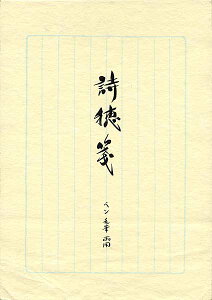 詩穂箋
ペン毛筆両用